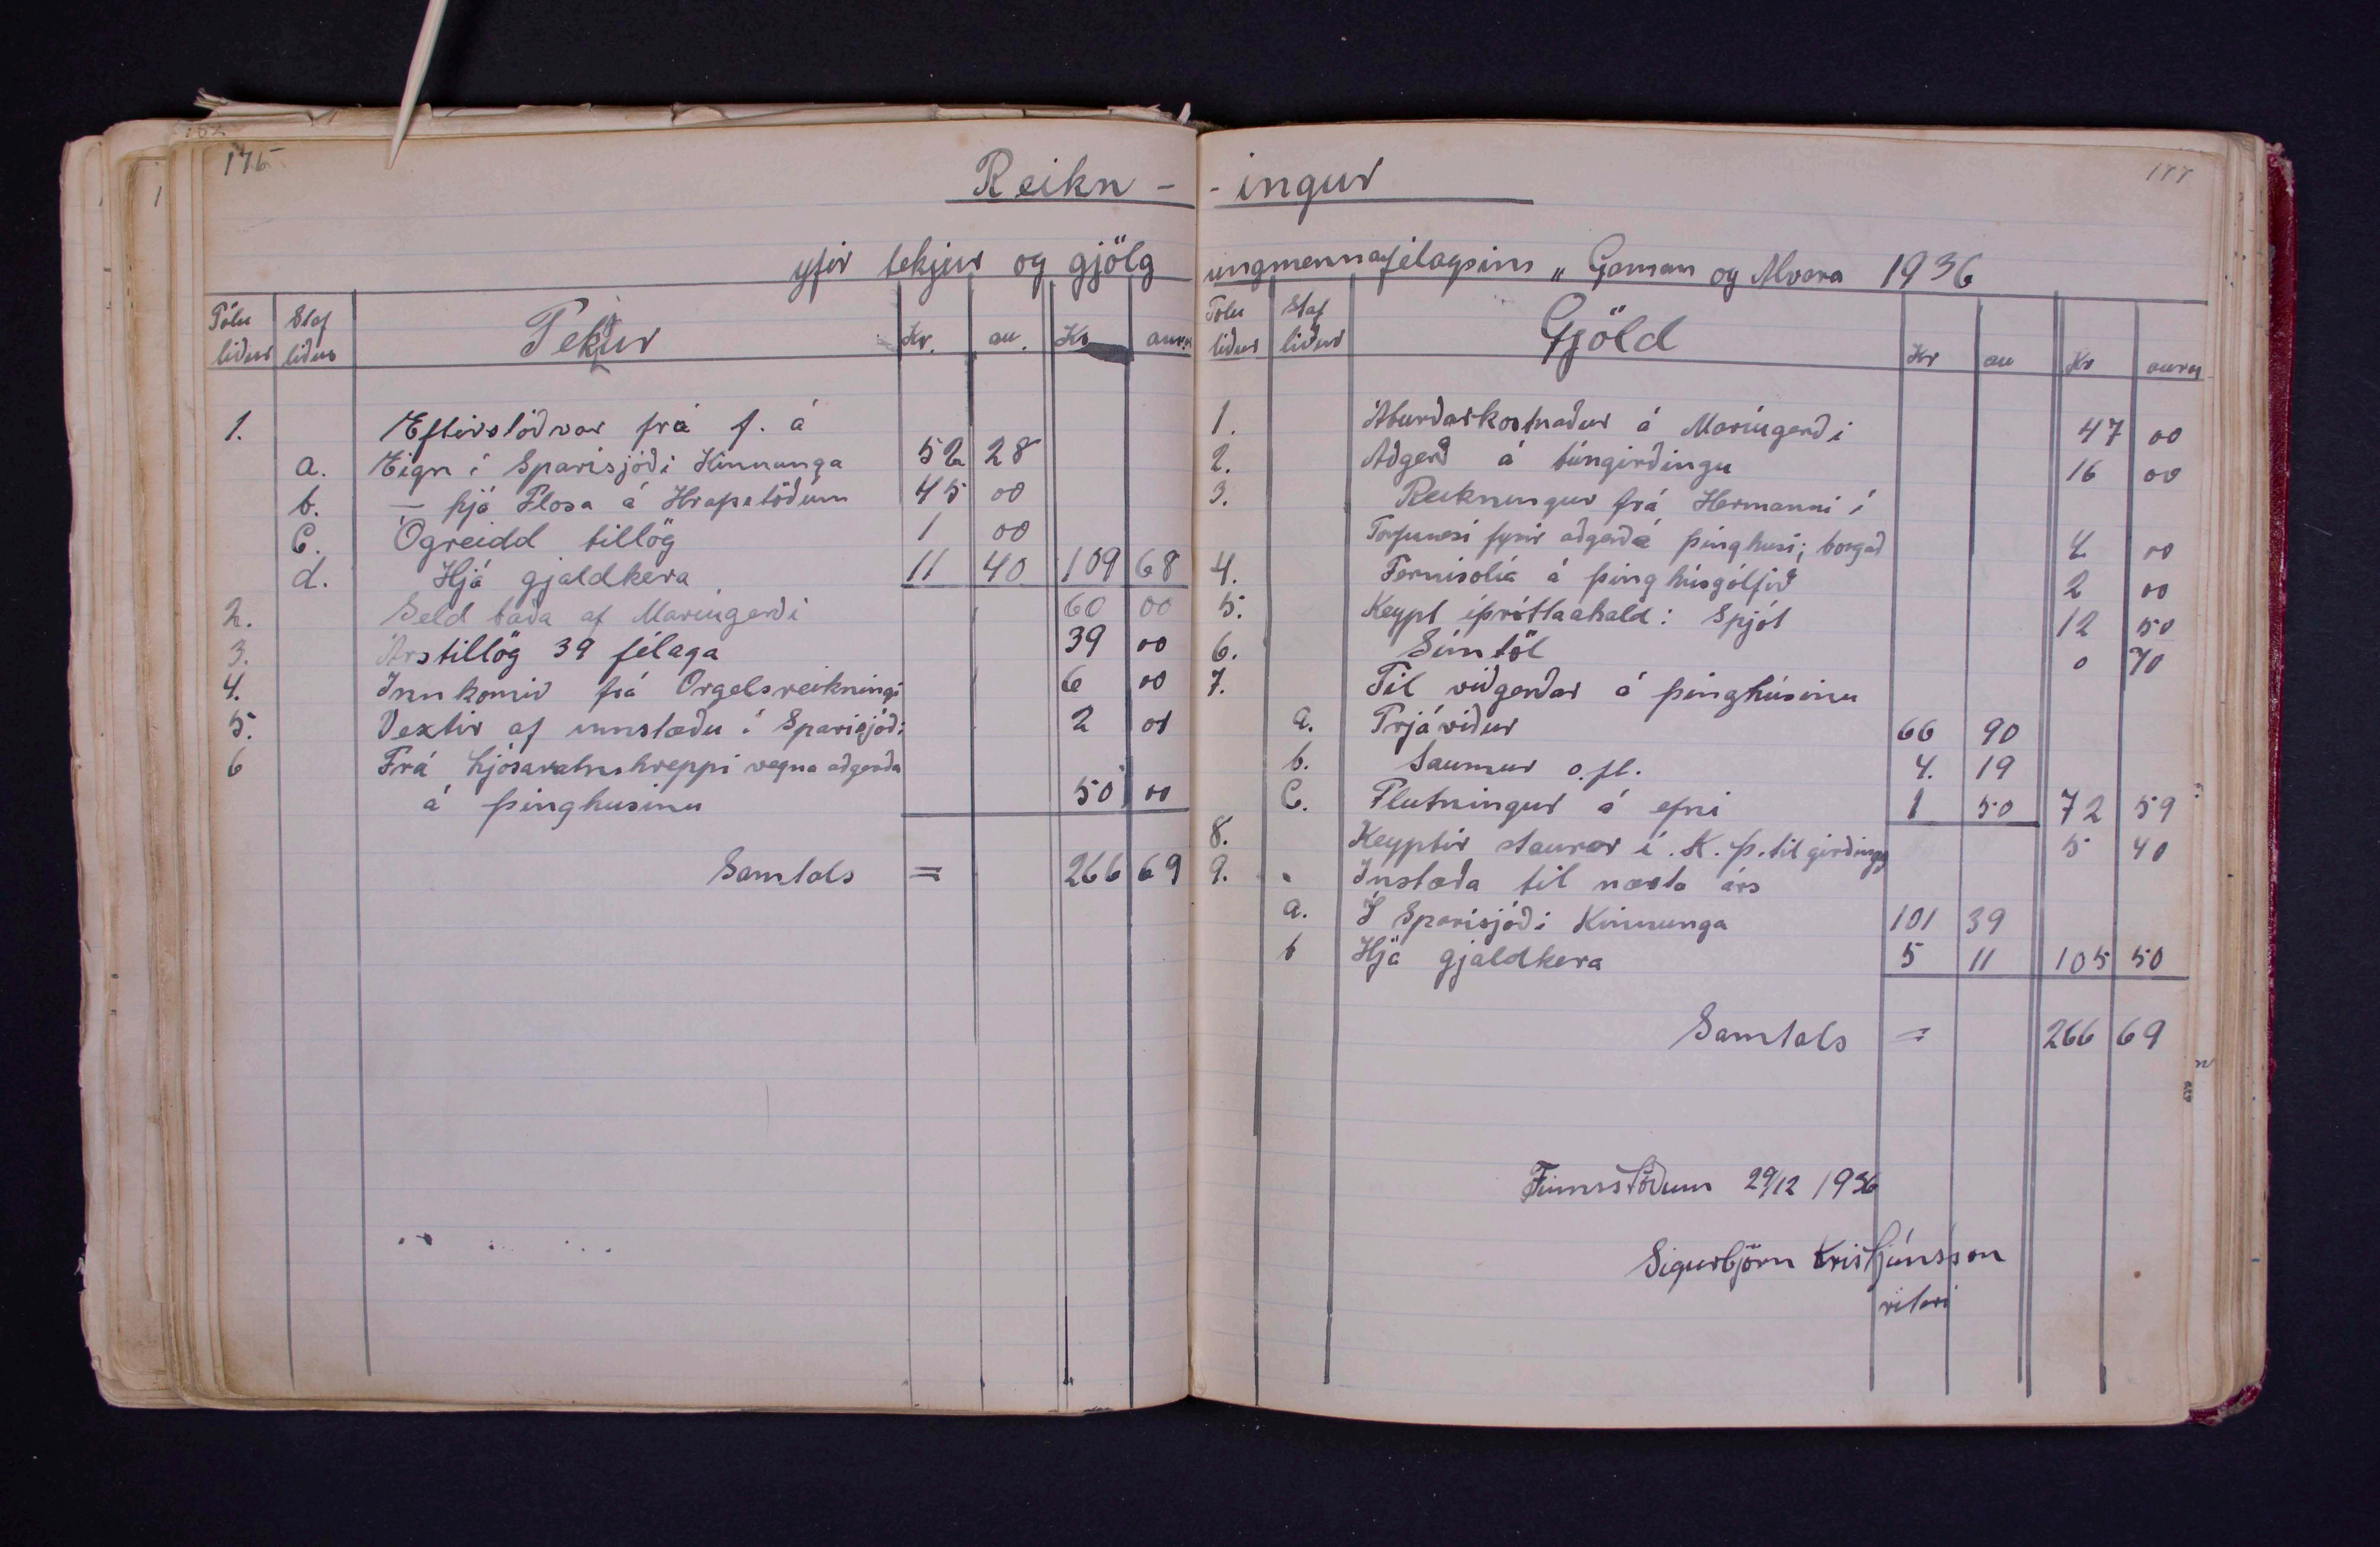 176
Reikn-
yfir tekjur og gjölg
Tölu liður Staf liður Tekjur Kr. au. Kr aurar
1. Eftirstöðvar frá f. á
a. Eign í Sparisjóði Kinnunga 52 28
b. — hjá Flosa á Hrapstöðum 45 00
C. Ógreidd tillög 1 00
d. Hjá gjaldkera 11 40 109 68
2. Seld taða af Maríugerði 60 00
3. Árstillög 39 félaga 39 00
4. Innkomið frá Orgelsreikningi 6 00
5. Vextir af innstæðu í Sparisjóði 2 01
6 Frá Ljósavatnshreppi vegna aðgerða
á þinghusinu 50 00
Samtals = 266 69
177
-ingur
ungmennafélagsins „Gaman og Alvara 1936
Tölu liður Staf liður Gjöld Kr au Kr aurar
1. Áburðarkostnaður á Maríugerði 47 00
2. Aðgerð á túngirðingu 16 00
3. Reikningur frá Hermanni í
Torfunesi fyrir aðgerð á þinghusi; borgað 4 00
4. Fernisolía á þinghúsgólfið 2 00
5. Keypt íþróttaahald: Spjót 12 50
6. Símtöl 0 70
7. Til viðgerðar á þinghúsinu
a. Trjáviður 66 90
b. Saumur o.fl. 4. 19
C. Flutningur á efni 1 50 72 59
8. Keyptir staurar í K.Þ. til girðinga 5 40
9. Instæða til næsta árs
a. Í Sparisjóði Kinnunga 101 39
b Hjá gjaldkera 5 11 105 50
Samtals = 266 69
Finnsstöðum 29/12 1936
Sigurbjörn Kristjánsson
ritari